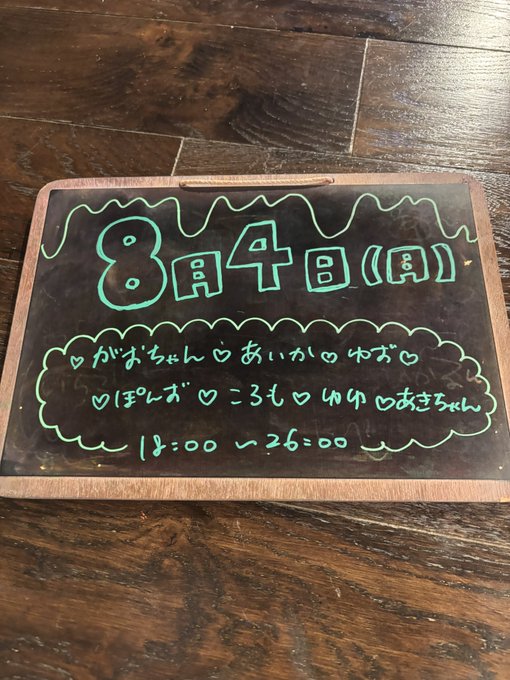 8月4日(月)
♡がおちゃん♡あいか♡ゆお♡
♡ぽんず♡ころも♡ゆゆ♡あきちゃん
18:00〜26:00